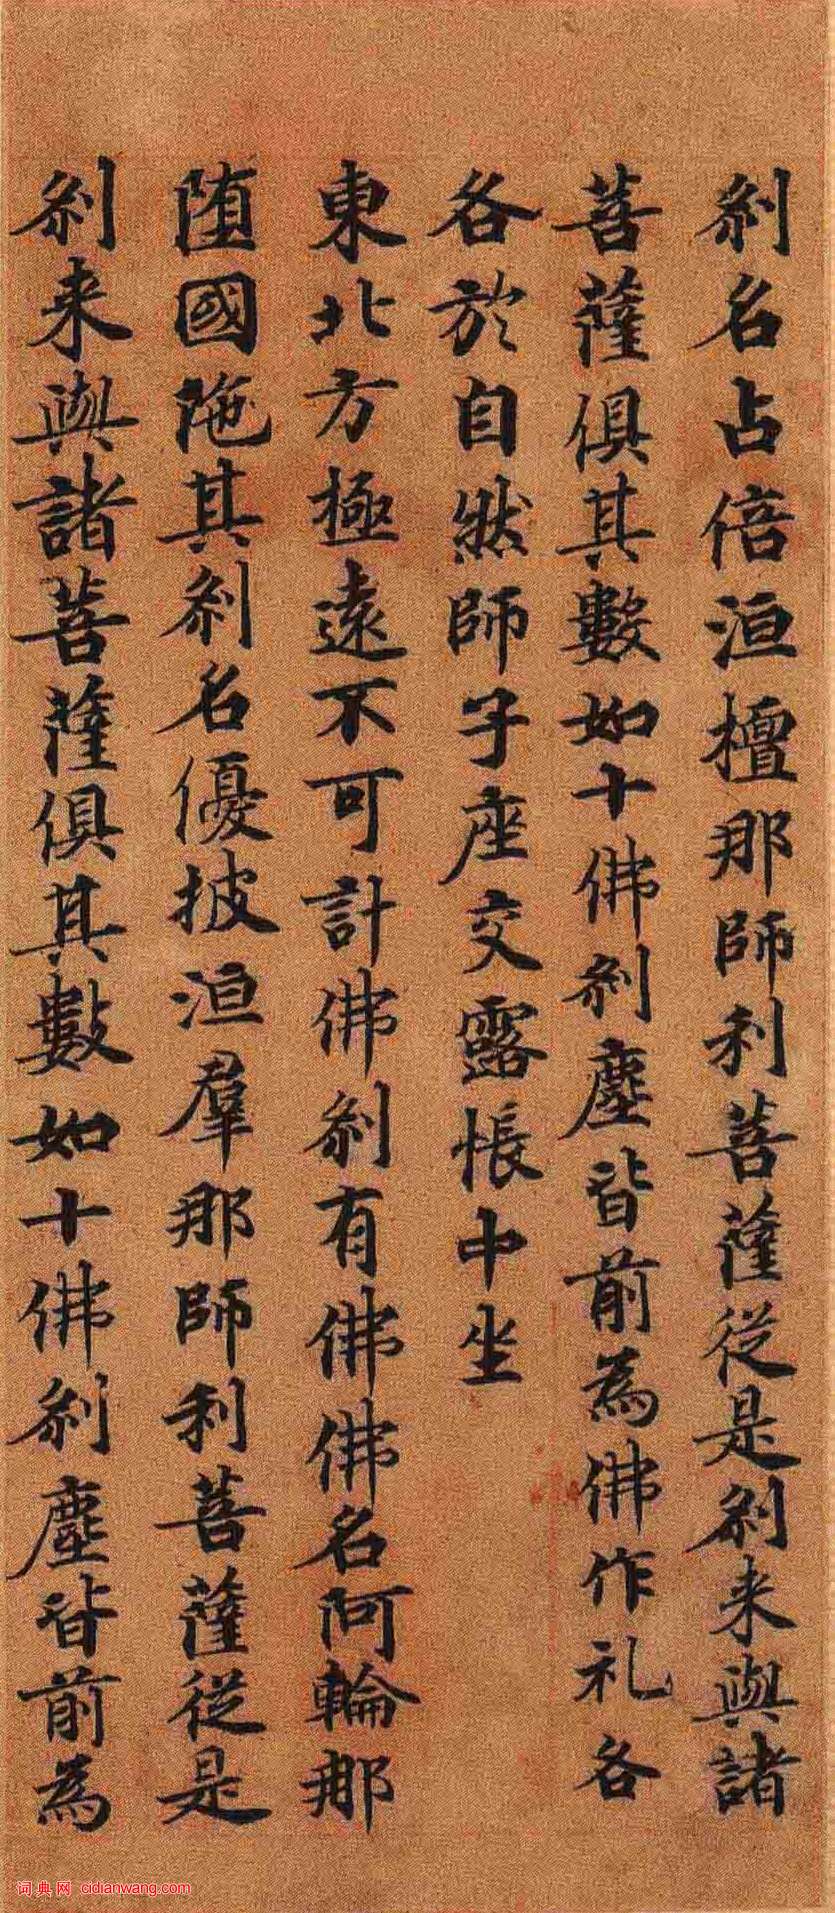 刹名占倍洹檀那師利菩薩從是刹来與諸
菩薩俱其數如十佛刹塵皆前為佛作礼各
各於自然師子座交露帳中坐
東北方極遠不可計佛刹有佛佛名阿輪那
堕國陁其刹名優披洹羣那師利菩薩從是
刹来與諸菩薩俱其數如十佛刹塵皆前為
词典网 cidianwang.com